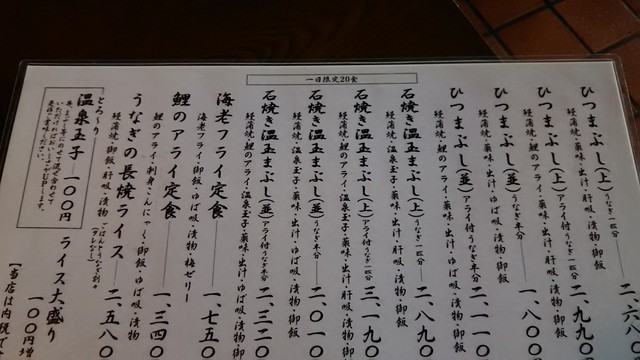 一日限定20食
ひつまぶし(上)うなぎ一匹分
軽蒲焼・薬味・出汁・肝吸・漬物・御飯
二、六八
ひつまぶし(上)アライ付うなぎ一匹分
軽蒲焼・鯉のアライ・薬味・出汁・肝吸・漬物・御飯
二、九九〇
ひつまぶし(並)うなぎ半分
軽蒲焼・薬味・出汁・ゆば吸・漬物・御飯
一、八〇〇
ひつまぶし(並)アライ付うなぎ半分
軽蒲焼・鯉のアライ・薬味・出汁・ゆば吸・漬物・御飯
二、一一〇
石焼き温玉まぶし(上)うなぎ一匹分
軽蒲焼・温泉玉子・薬味・出汁・肝吸・漬物・御飯
二、八九〇
石焼き温玉まぶし(上)アライ付うなぎ一匹分
軽蒲焼・鯉のアライ・温泉玉子・薬味・出汁・肝吸・漬物・御
三、一九〇
石焼き温玉まぶし(並)うなぎ半分
軽蒲焼・温泉玉子・薬味・出汁・ゆば吸・漬物・御飯
二、〇一〇
石焼き温玉まぶし(並)アライ付うなぎ半分
軽蒲焼・鯉のアライ・温泉玉子・薬味・出汁・ゆば吸・漬物・御
二、三二〇
海老フライ定食
海老フライ・御飯・ゆば吸・漬物
一、七五〇
鯉のアライ定食
鯉のアライ・刺身こんにゃく・御飯・ゆば吸・漬物・梅ゼリー
一、三四〇
うなぎの長焼ライス
軽蒲焼・御飯・肝吸・漬物
二、五八〇
とろ〜り
温泉玉子 一〇〇円
ライス大盛り
一〇〇円増
【当店は内税で